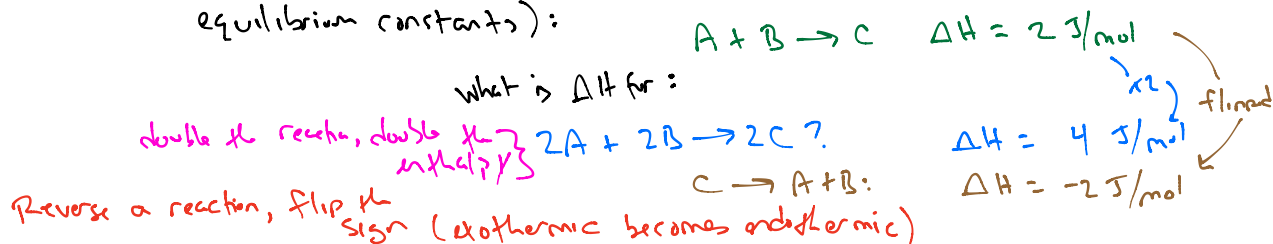 equilibrium constants):
A + B → C ΔH = 2 J/mol
x2
flipped
what is ΔH for:
double the reaction, double the enthalpy} 2A + 2B → 2C ? ΔH = 4 J/mol
C → A+B: ΔH = -2 J/mol
Reverse a reaction, flip the
sign (exothermic becomes endothermic)